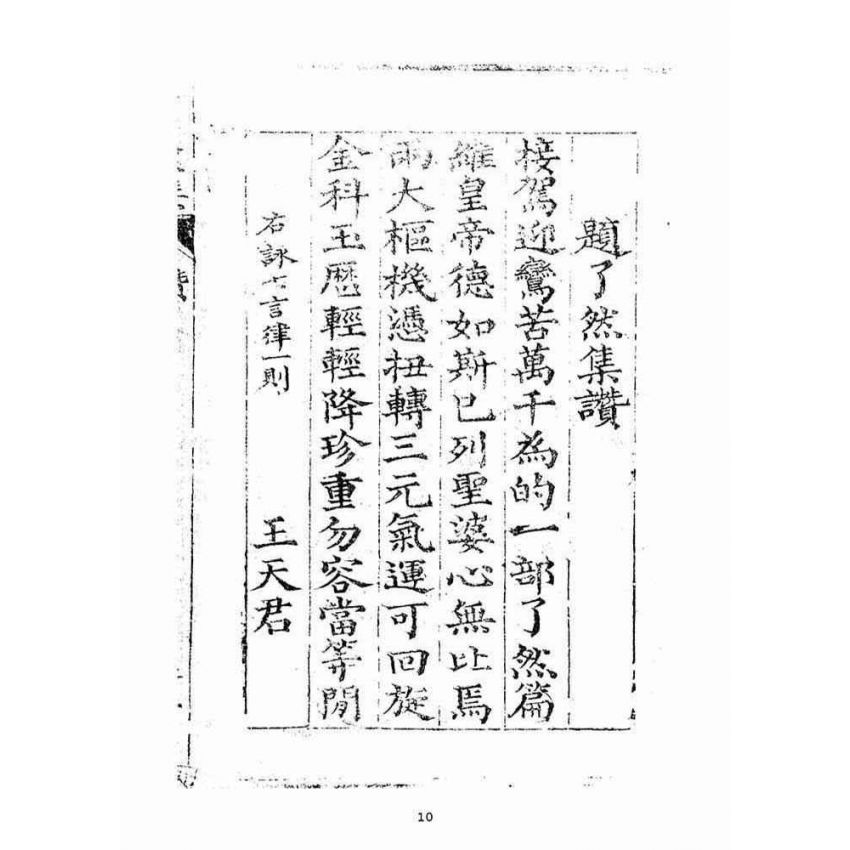 題了然集讚
接駕迎鸞苦萬千為的一部了然篇
維皇帝德如斯已列聖婆心無比焉
兩大樞機憑扭轉三元氣運可回旋
金科玉歷輕輕降珍重勿容當等閒
右詠七言律一則
王天君
10